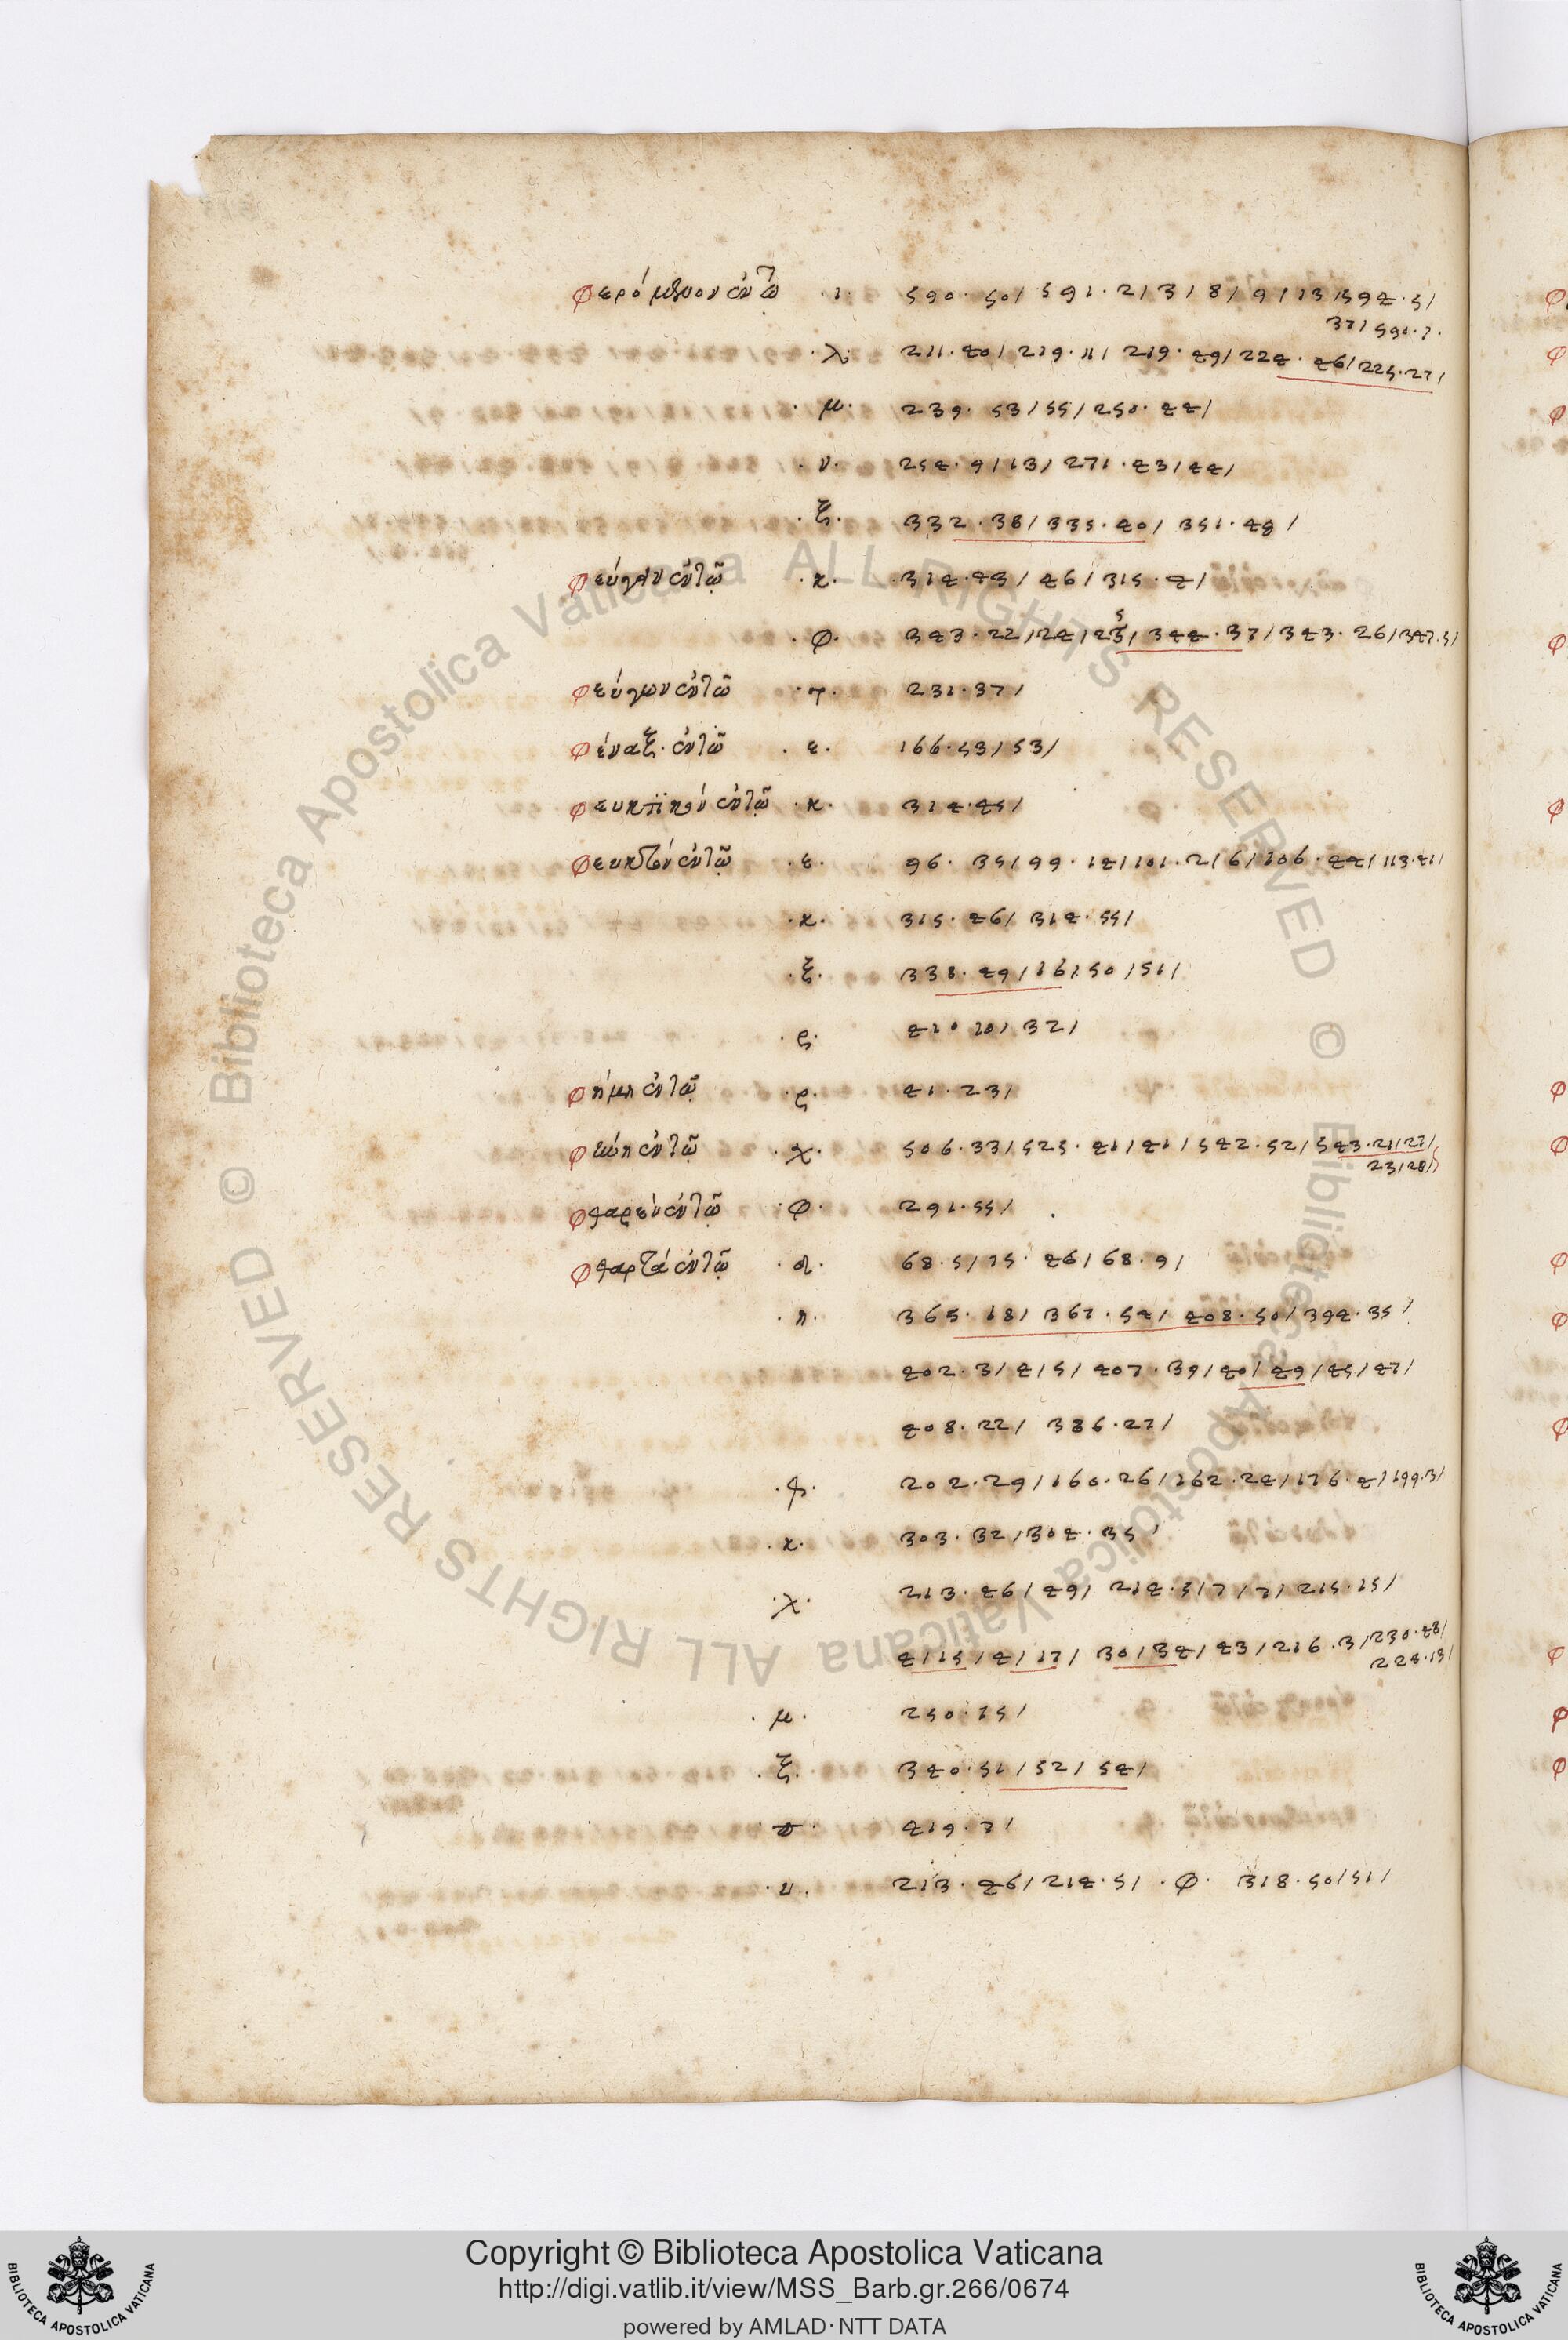 φερόμενον ἐν τῷ · ι · 590 · 50 / 591 · 2 / 3 / 8 / 9 / 13 / 594 · 5 /
37 / 590 · 7 ·
· λ · 211 · 40 / 219 · 11 / 219 · 49 / 224 · 46 / 225 · 27 /
· μ · 239 · 53 / 55 / 250 · 44 /
· ν · 254 · 9 / 13 / 271 · 43 / 44 /
· ξ · 332 · 38 / 335 · 40 / 351 · 48 /
φεύγειν ἐν τῷ · κ · 314 · 43 / 46 / 315 · 4 /
· φ · 343 · 22 / 24 / 25 / 344 · 37 / 343 · 26 / 347 · 5 /
φεύγων ἐν τῷ · γ · 231 · 37 /
φέναξ · ἐν τῷ · ε · 166 · 53 / 53 /
φευκτικὸν ἐν τῷ · κ · 314 · 45 /
φευκτὸν ἐν τῷ · ε · 96 · 35 / 99 · 14 / 101 · 2 / 6 / 106 · 44 / 113 · 41 /
· κ · 315 · 46 / 314 · 55 /
· ξ · 338 · 49 / 16 / 50 / 51 /
· ς · 410 · 10 / 32 /
φήμη ἐν τῷ · ς · 41 · 23 /
ἐν τῷ · χ · 506 · 33 / 525 · 41 / 41 / 542 · 52 / 543 · 21 / 27 /
23 / 28 /
φθαρὲν ἐν τῷ · φ · 291 · 55 /
φθαρτὰ ἐν τῷ · α · 68 · 5 / 75 · 46 / 68 · 9 /
· η · 365 · 18 / 367 · 54 / 408 · 50 / 394 · 35 /
402 · 3 / 4 / 5 / 407 · 39 / 40 / 49 / 45 / 47 /
408 · 22 / 386 · 27 /
202 · 29 / 160 · 26 / 162 · 24 / 176 · 4 / 199 · 3 /
· κ · 303 · 32 / 304 · 35 /
· λ · 213 · 46 / 49 / 214 · 5 / 7 / 7 / 215 · 15 /
4 / 15 / 4 / 17 / 30 / 34 / 43 / 216 · 3 / 230 · 48 /
228 · 13 /
· μ · 250 · 15 /
· ξ · 340 · 51 / 52 / 54 /
419 · 7 /
· υ · 213 · 46 / 214 · 5 / · φ · 318 · 50 / 51 /
Biblioteca Apostolica Vaticana ALL RIGHTS RESERVED © Biblioteca Apostolica Vaticana ALL RIGHTS RESERVED ©
Copyright © Biblioteca Apostolica Vaticana
http://digi.vatlib.it/view/MSS_Barb.gr.266/0674
powered by AMLAD·NTT DATA
BIBLIOTECA APOSTOLICA VATICANA
BIBLIOTECA APOSTOLICA VATICANA